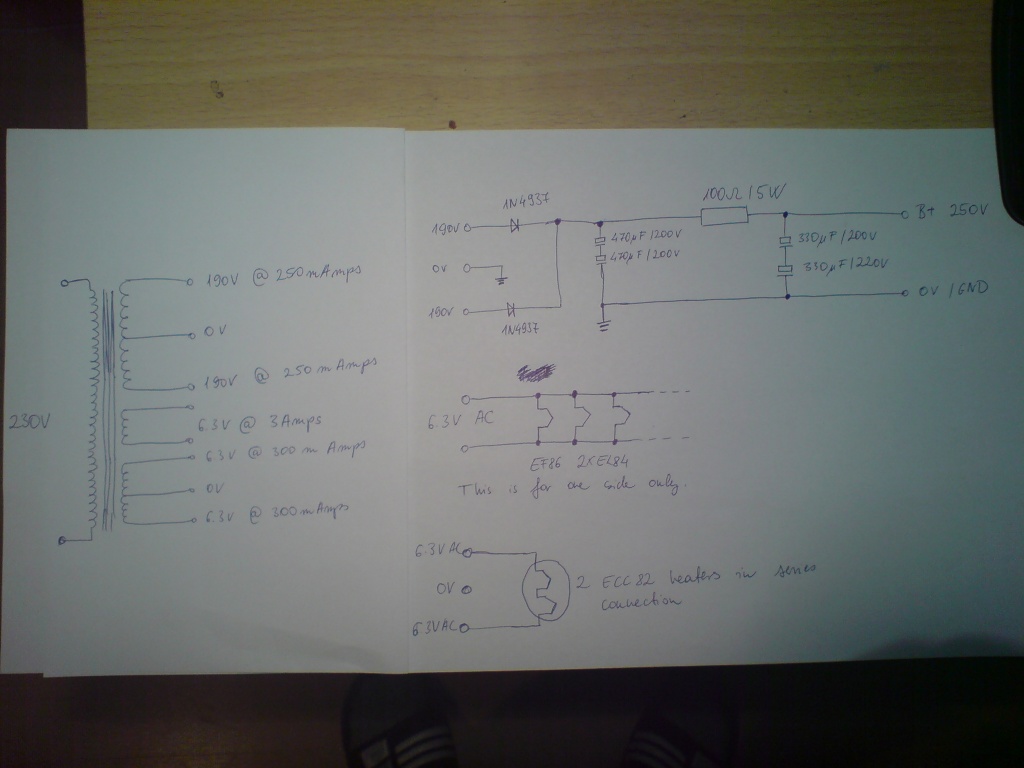 230V
190V @ 250 mAmps
0V
190V @ 250 mAmps
6.3V @ 3Amps
6.3V @ 300 mAmps
0V
6.3V @ 300 mAmps
1N4937
190V
0V
190V
1N4937
470µF/200V
470µF/200V
100Ω/5W
330µF/200V
330µF/220V
B+ 250V
0V/GND
6.3V AC
EF86 2xEL84
This is for one side only.
6.3VAC
0V
6.3VAC
2 ECC82 heaters in series
connection